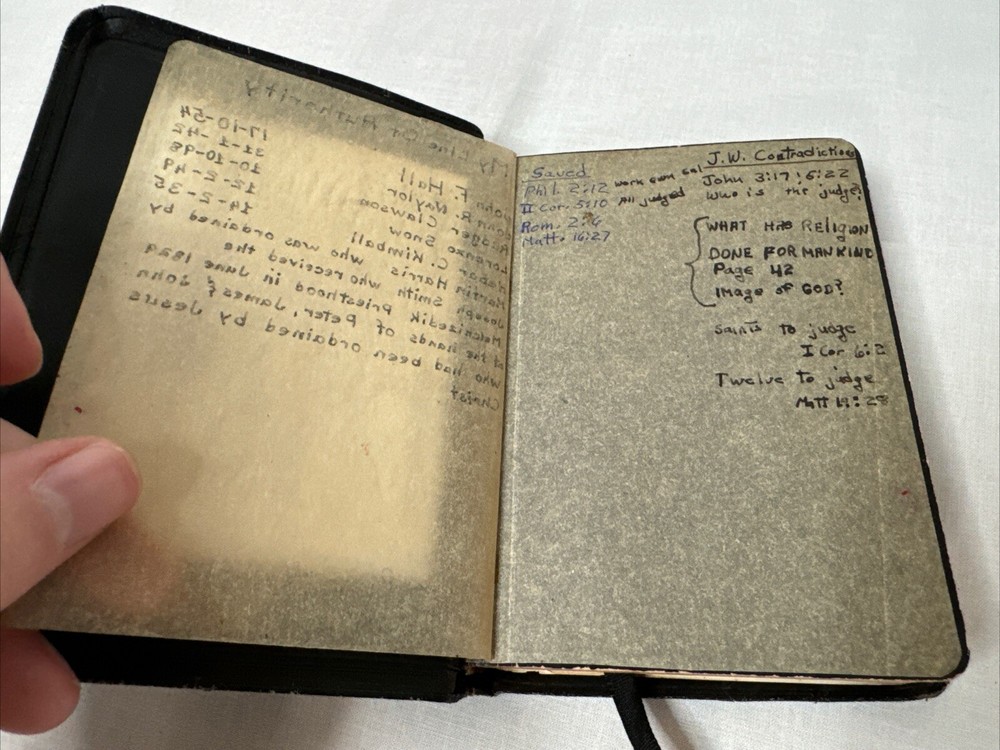 My Line of Authority
John F. Hall 17-10-54
John R. Naylor
Rudger Clawson 10-10-98
Lorenzo Snow 12-2-49
Heber C. Kimball 14-2-35
Martin Harris who was ordained by
Joseph Smith who received the
Melchizedik Priesthood in June 1829
at the hands of Peter, James & John
who had been ordained by Jesus
Christ
Saved
Phil. 2:12 work own sal
II Cor. 5:10 All judged
Rom. 2:6
Matt. 16:27
J.W. Contradictions
John 3:17; 5:22
Who is the judge?
WHAT HAS Religion
DONE FOR MANKIND
Page 42
Image of GOD?
Saints to judge
I Cor 6:2
Twelve to judge
Matt 19:28